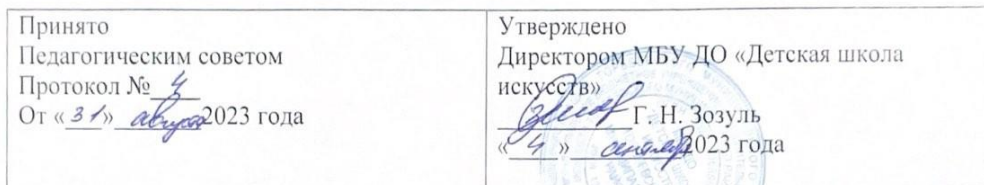 Принято
Педагогическим советом
Протокол № 4
От «31» августа 2023 года
Утверждено
Директором МБУ ДО «Детская школа
искусств»
Г. Н. Зозуль
«4» сентября 2023 года